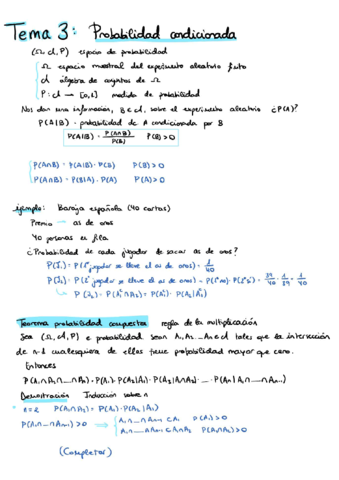 Tema 3: Probabilidad condicionada
(Ω, A, P) espacio de probabilidad
Ω espacio muestral del experimento aleatorio finito
A álgebra de conjuntos de Ω
P: A → [0,1] medida de probabilidad
Nos dan una información, B∈A, sobre el experimento aleatorio ¿P(A)?
P(A|B) = probabilidad de A condicionada por B
P(A|B) = P(A∩B)/P(B) P(B)>0
P(A∩B) = P(A|B)·P(B) P(B)>0
P(A∩B) = P(B|A)·P(A) P(A)>0
ejemplo: Baraja española (40 cartas)
Premio → as de oros
40 personas en fila
¿Probabilidad de cada jugador de sacar as de oros?
P(J₁) = P(1er jugador se lleve el as de oros) = 1/40
P(J₂) = P(2º jugador se lleve el as de oros) = P(1º no)·P(2º sí) = 39/40 · 1/39 = 1/40
P(J₂) = P(A₁ᶜ∩A₂) = P(A₁ᶜ)·P(A₂|A₁ᶜ)
Teorema probabilidad compuesta: regla de la multiplicación
Sea (Ω, A, P) e probabilidad sean A₁, A₂ ... Aₙ ∈ A tales que la intersección
de n-1 cualesquiera de ellas tiene probabilidad mayor que cero.
Entonces
P(A₁∩A₂∩...∩Aₙ) = P(A₁)·P(A₂|A₁)·P(A₃|A₁∩A₂)· ... ·P(Aₙ|A₁∩...∩Aₙ₋₁)
Demostración Inducción sobre n
n=2 P(A₁∩A₂) = P(A₁)·P(A₂|A₁)
P(A₁∩...∩Aₙ₋₁)>0 ⇒ A₁∩...∩Aₙ₋₁ ⊂ A₁ P(A₁)>0
A₁∩...∩Aₙ₋₁ ⊂ A₁∩A₂ P(A₁∩A₂)>0
(Completar)